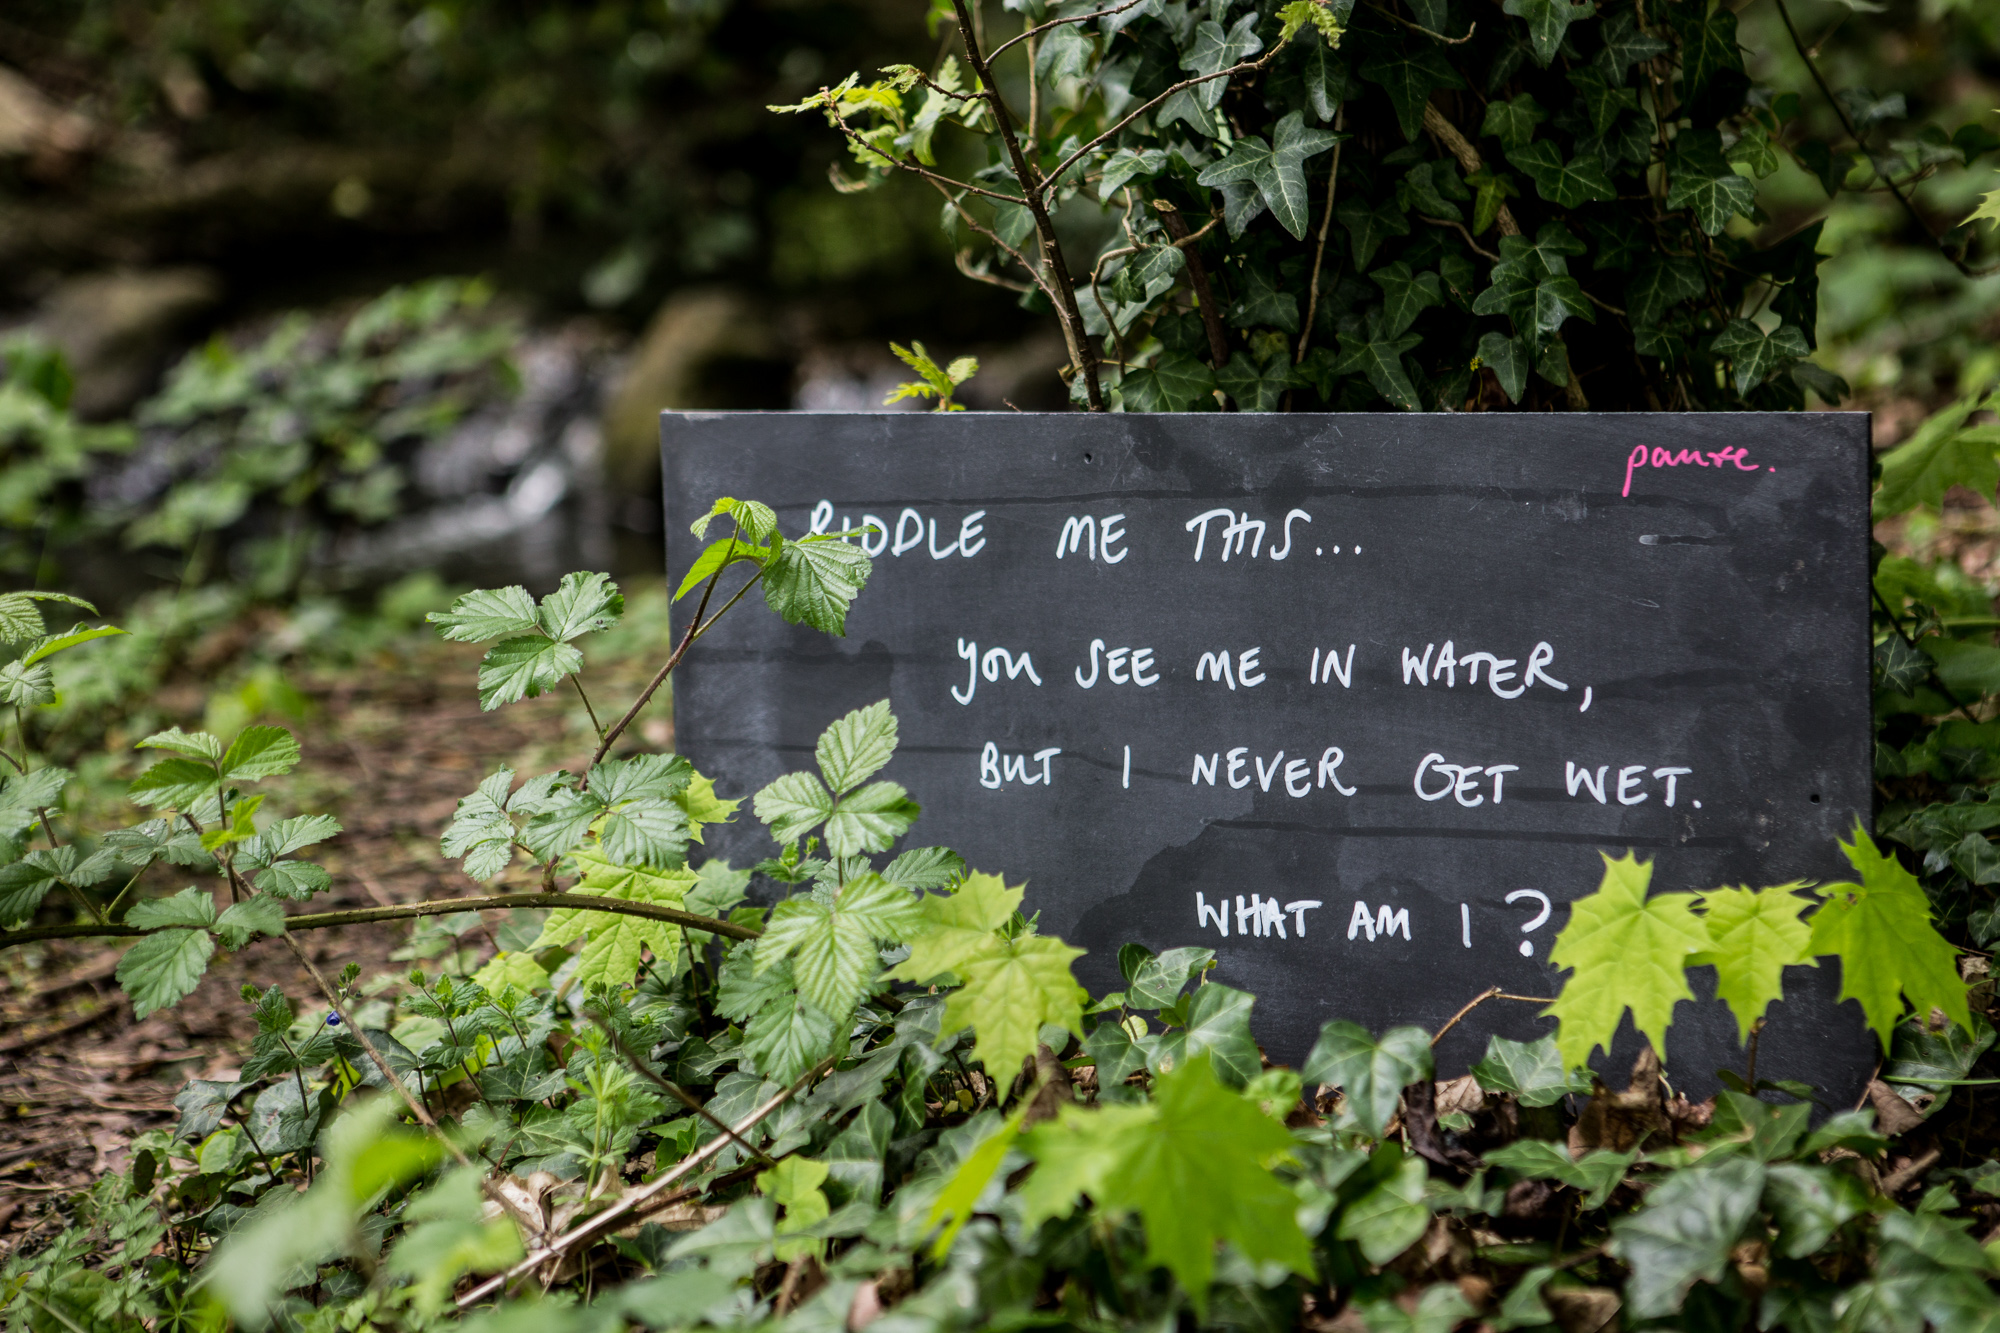 pause.
RIDDLE ME THIS...
you SEE ME IN WATER,
BUT I NEVER GET WET.
WHAT AM I?